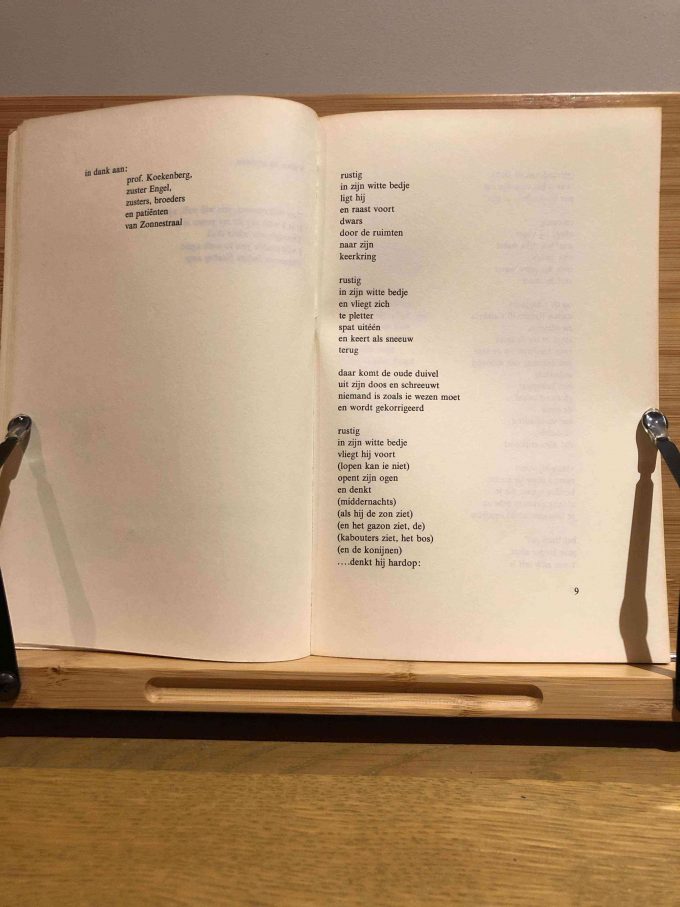 in dank aan:
prof. Koekenberg,
zuster Engel,
zusters, broeders
en patiënten
van Zonnestraal
rustig
in zijn witte bedje
ligt hij
en raast voort
dwars
door de ruimten
naar zijn
keerkring
rustig
in zijn witte bedje
en vliegt zich
te pletter
spat uitéén
en keert als sneeuw
terug
daar komt de oude duivel
uit zijn doos en schreeuwt
niemand is zoals ie wezen moet
en wordt gekorrigeerd
rustig
in zijn witte bedje
vliegt hij voort
(lopen kan ie niet)
opent zijn ogen
en denkt
(middernachts)
(als hij de zon ziet)
(en het gazon ziet, de)
(kabouters ziet, het bos)
(en de konijnen)
....denkt hij hardop:
9